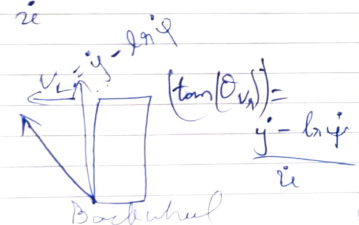 ẋ
V_L = ẏ - l_r ψ̇
(tan(θ_Vr)) =
ẏ - l_r ψ̇
ẋ
Backwheel